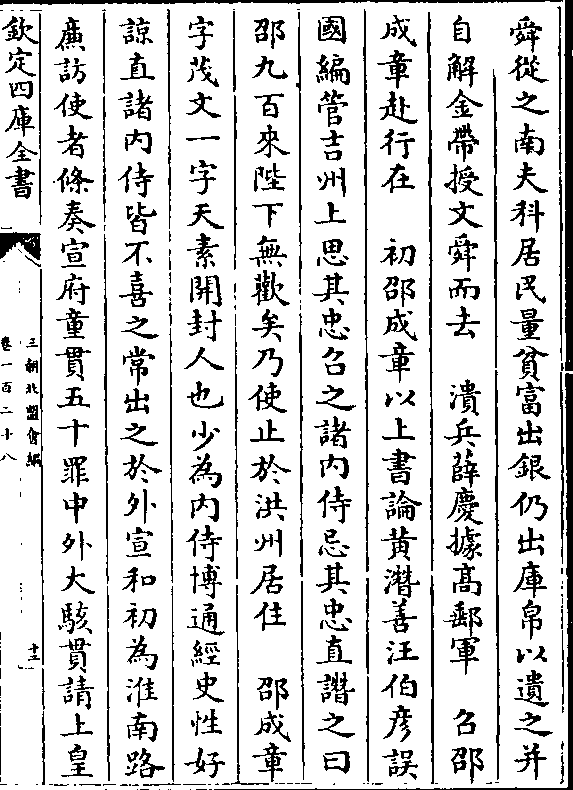 舜從之南夫科居民量貧富出銀仍出庫帛以遺之并
自解金帶授文舜而去　潰兵薛慶據髙郵軍　召邵
成章赴行在　初邵成章以上書論黄潛善汪伯彦誤
國編管吉州上思其忠召之諸内侍忌其忠直譖之曰
邵九百來陛下無歡矣乃使止於洪州居住　邵成章
字茂文一字天素開封人也少為内侍博通經史性好
諒直諸内侍皆不喜之常出之於外宣和初為淮南路
廉訪使者條奏宣府童貫五十罪中外大駭貫請上皇
欽定四庫全書
三朝北盟會編
卷一百二十八
十三